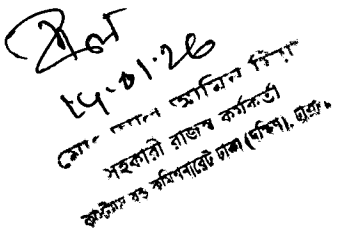 ১৮.০১.২৬
মোঃ আল আমিন মিয়া
সহকারী রাজস্ব কর্মকর্তা
কাস্টমস বন্ড কমিশনারেট ঢাকা (দক্ষিণ), ঢাকা।